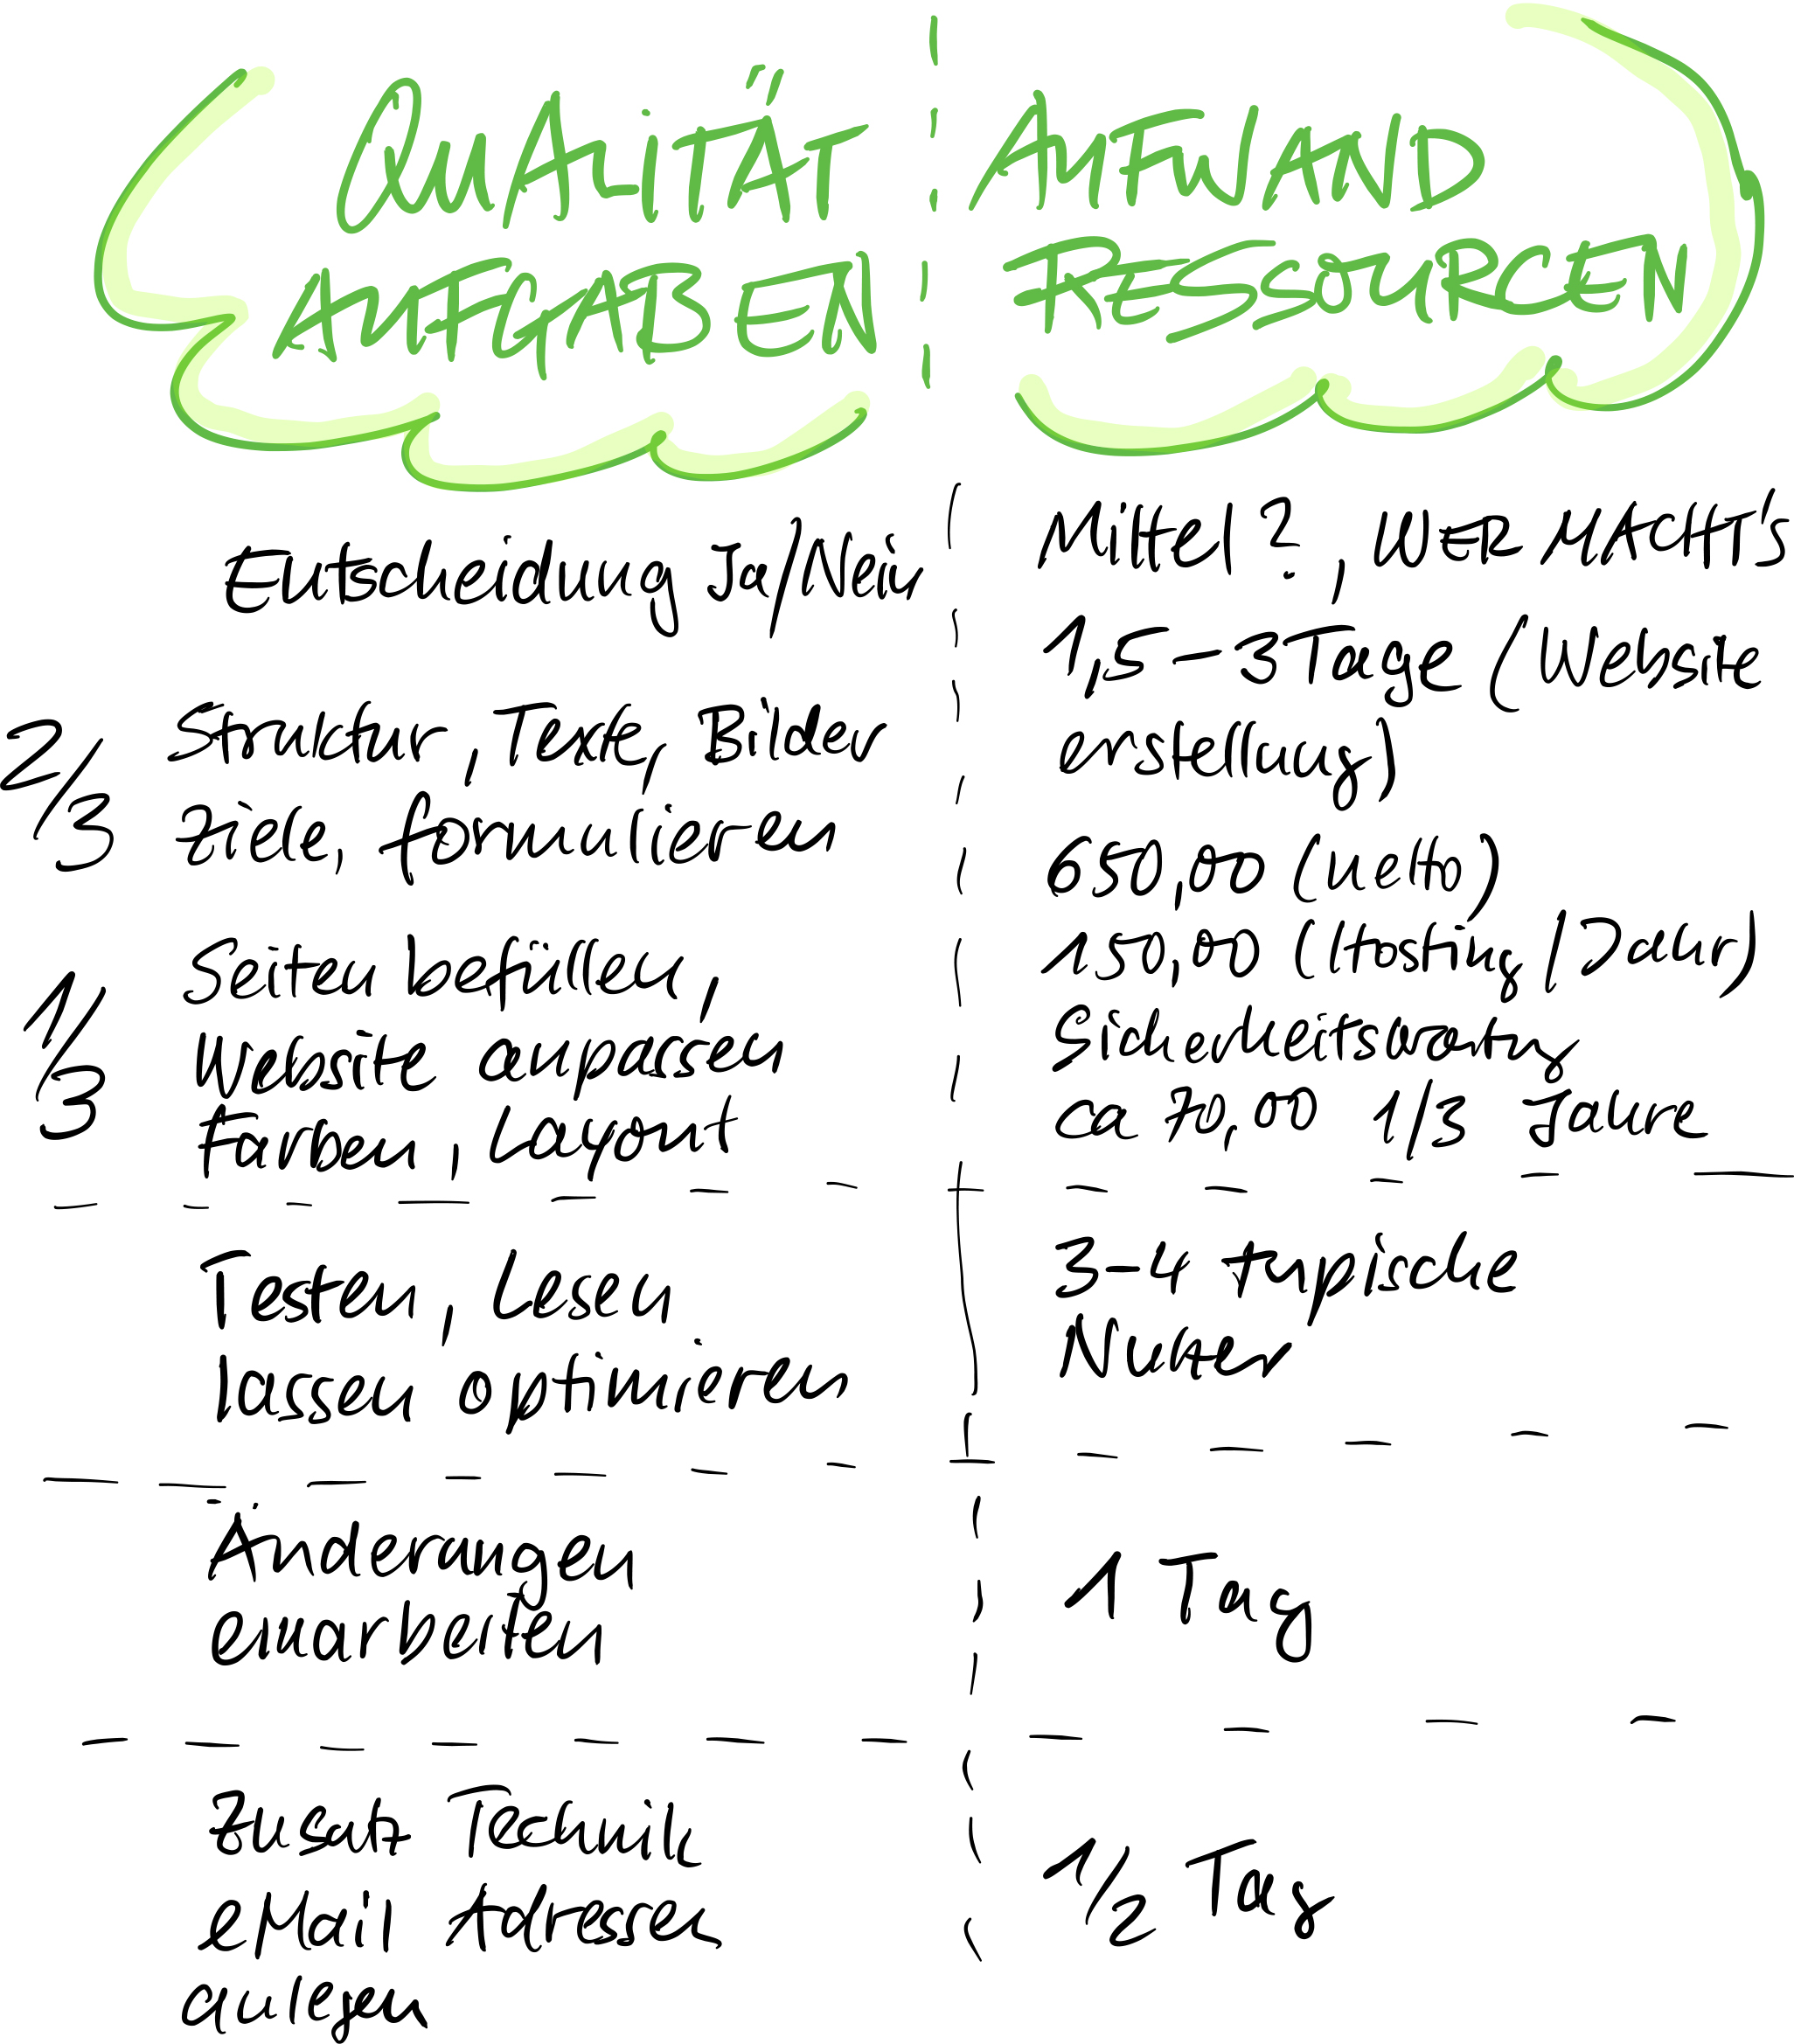 QUALITÄT
AUFGABEN
AUFWAND
RESSOURCEN
Entscheidung Ja/Nein
2/3
Struktur, Texte, Bilder
Ziele, formulieren
1/3
Seiten befüllen,
Website anpassen
Farben, Layout
Mittel?, WER MACHT'S
1,5-3 Tage (Website
erstellung)
650,00 (netto)
150,00 (Hosting/Jahr)
Sicherheitswartung
ca 70,00 1/3 Jahre
Testen, Lesen
lassen optimieren
3-4 typische
Nutzer
Änderungen
einarbeiten
1 Tag
Zusatz Technik
eMail Adressen
anlegen
1/2 Tag